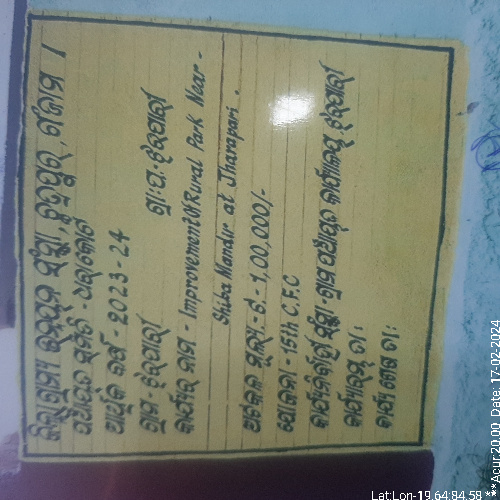 ଜିଲ୍ଲା ଗ୍ରାମ୍ୟ ଉନ୍ନୟନ ସଂସ୍ଥା, ଛତ୍ରପୁର, ଗଞ୍ଜାମ ।
ପଞ୍ଚାୟତ ସମିତି - ଧରାକୋଟ
ଆର୍ଥିକ ବର୍ଷ - 2023-24
ଗ୍ରାମ - ଝରାପାରୀ ଗ୍ରା:ପ:-ଝରାପାରୀ
କାର୍ଯ୍ୟର ନାମ - Improvement Of Rural Park Near -
Shiba Mandir at Jharapari.
ଅଟକଳ ମୂଲ୍ୟ :- ଟ.- 1,00,000/-
ଯୋଜନା - 15th C.F.C
କାର୍ଯ୍ୟନିର୍ବାହୀ ସଂସ୍ଥା - ଗ୍ରାମ ପଞ୍ଚାୟତ କାର୍ଯ୍ୟାଳୟ, ଝରାପାରୀ
କାର୍ଯ୍ୟାରମ୍ଭ ତା:
କାର୍ଯ୍ୟ ଶେଷ ତା:
Lat:Lon-19.64:84.58 ***Acur:20.00 Date: 17-02-2024